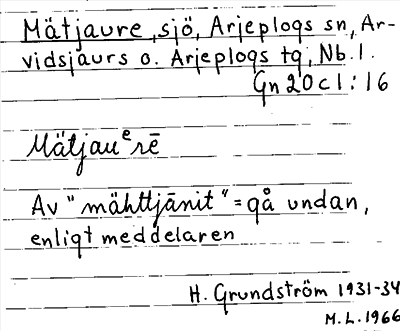 Mätjaure, sjö, Arjeplogs sn, Ar-
vidsjaurs o. Arjeplogs tg, Nb. l.
Gn 20 c 1 : 16
Mätjauᵉrē
Av "mähttjānit" = gå undan,
enligt meddelaren
H. Grundström 1931-34
M.L. 1966